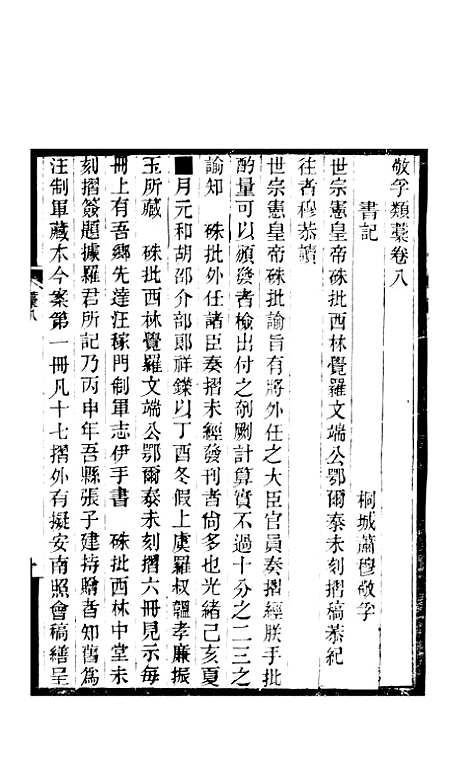 敬孚類藁卷八
桐城蕭穆敬孚
書記
世宗憲皇帝硃批西林覺羅文端公鄂爾泰未刻摺稿恭紀
往者穆恭讀
世宗憲皇帝硃批諭旨有將外任之大臣官員奏摺經朕手批
酌量可以頒發者檢出付之剞劂計算實不過十分之二三之
諭知 硃批外任諸臣奏摺未經發刊者尚多也光緒己亥夏
月元和胡邵介部郎祥鑅以丁酉冬假上虞羅叔韞孝廉振
玉所藏 硃批西林覺羅文端公鄂爾泰未刻摺六冊見示每
冊上有吾鄉先達汪稼門制軍志伊手書 硃批西林中堂未
刻摺簽題據羅君所記乃丙申年吾縣張子建持贈者知舊為
汪制軍藏本今案第一冊凡十七摺外有擬安南照會稿繕呈
藁八
一